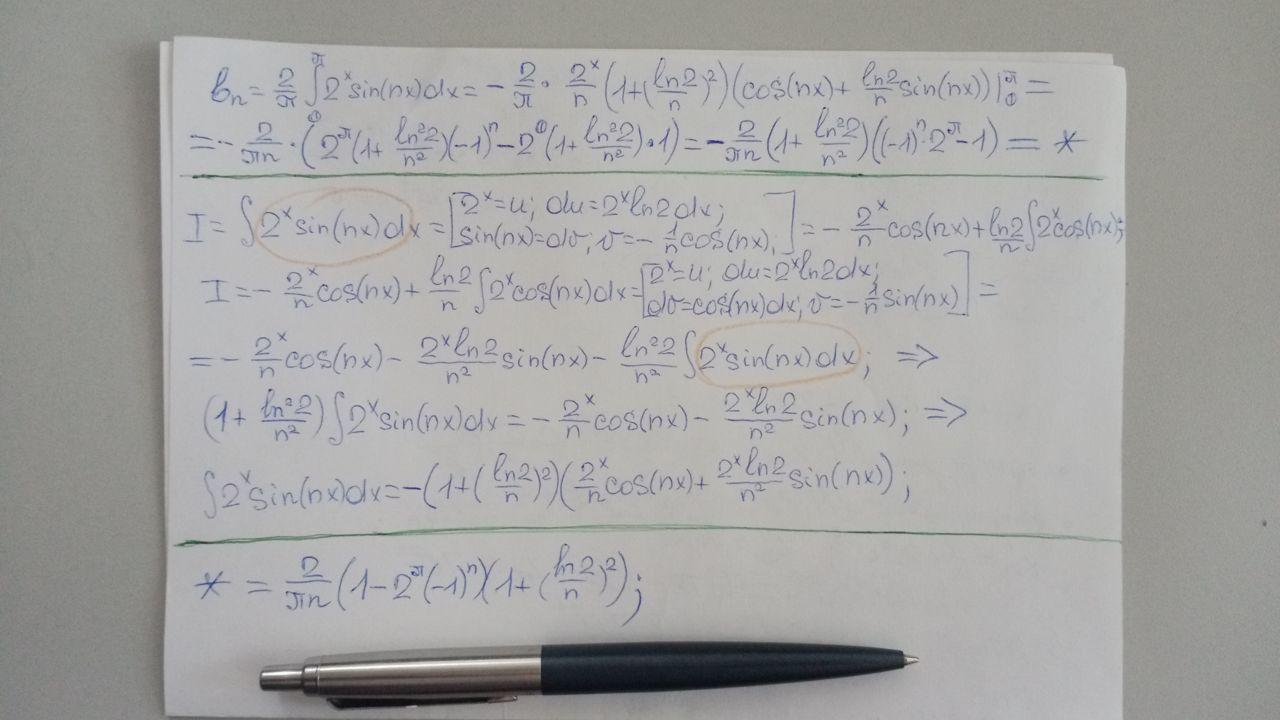 bₙ = 2/π ∫₀^π 2ˣsin(nx)dx = - 2/π · 2ˣ/n (1+(ln2/n)²)(cos(nx)+ ln2/n sin(nx))|₀^π =
= - 2/πn · (2^π(1+ ln²2/n²)(-1)ⁿ - 2⁰(1+ ln²2/n²)·1) = - 2/πn (1+ ln²2/n²)((-1)ⁿ·2^π - 1) = *
I = ∫ 2ˣsin(nx)dx = [2ˣ=u; du=2ˣln2dx; sin(nx)=dv; v=- 1/n cos(nx);] = - 2ˣ/n cos(nx)+ ln2/n ∫2ˣcos(nx);
I = - 2ˣ/n cos(nx)+ ln2/n ∫2ˣcos(nx)dx = [2ˣ=u; du=2ˣln2dx; dv=cos(nx)dx; v=- 1/n sin(nx)] =
= - 2ˣ/n cos(nx) - 2ˣln2/n² sin(nx) - ln²2/n² ∫2ˣsin(nx)dx; =>
(1+ ln²2/n²) ∫2ˣsin(nx)dx = - 2ˣ/n cos(nx) - 2ˣln2/n² sin(nx); =>
∫2ˣsin(nx)dx = -(1+(ln2/n)²)(2ˣ/n cos(nx)+ 2ˣln2/n² sin(nx));
* = 2/πn (1-2^π(-1)ⁿ)(1+(ln2/n)²);